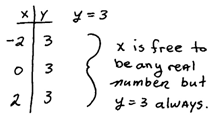 x y y = 3
-2 3
0 3
2 3
x is free to
be any real
number but
y = 3 always.